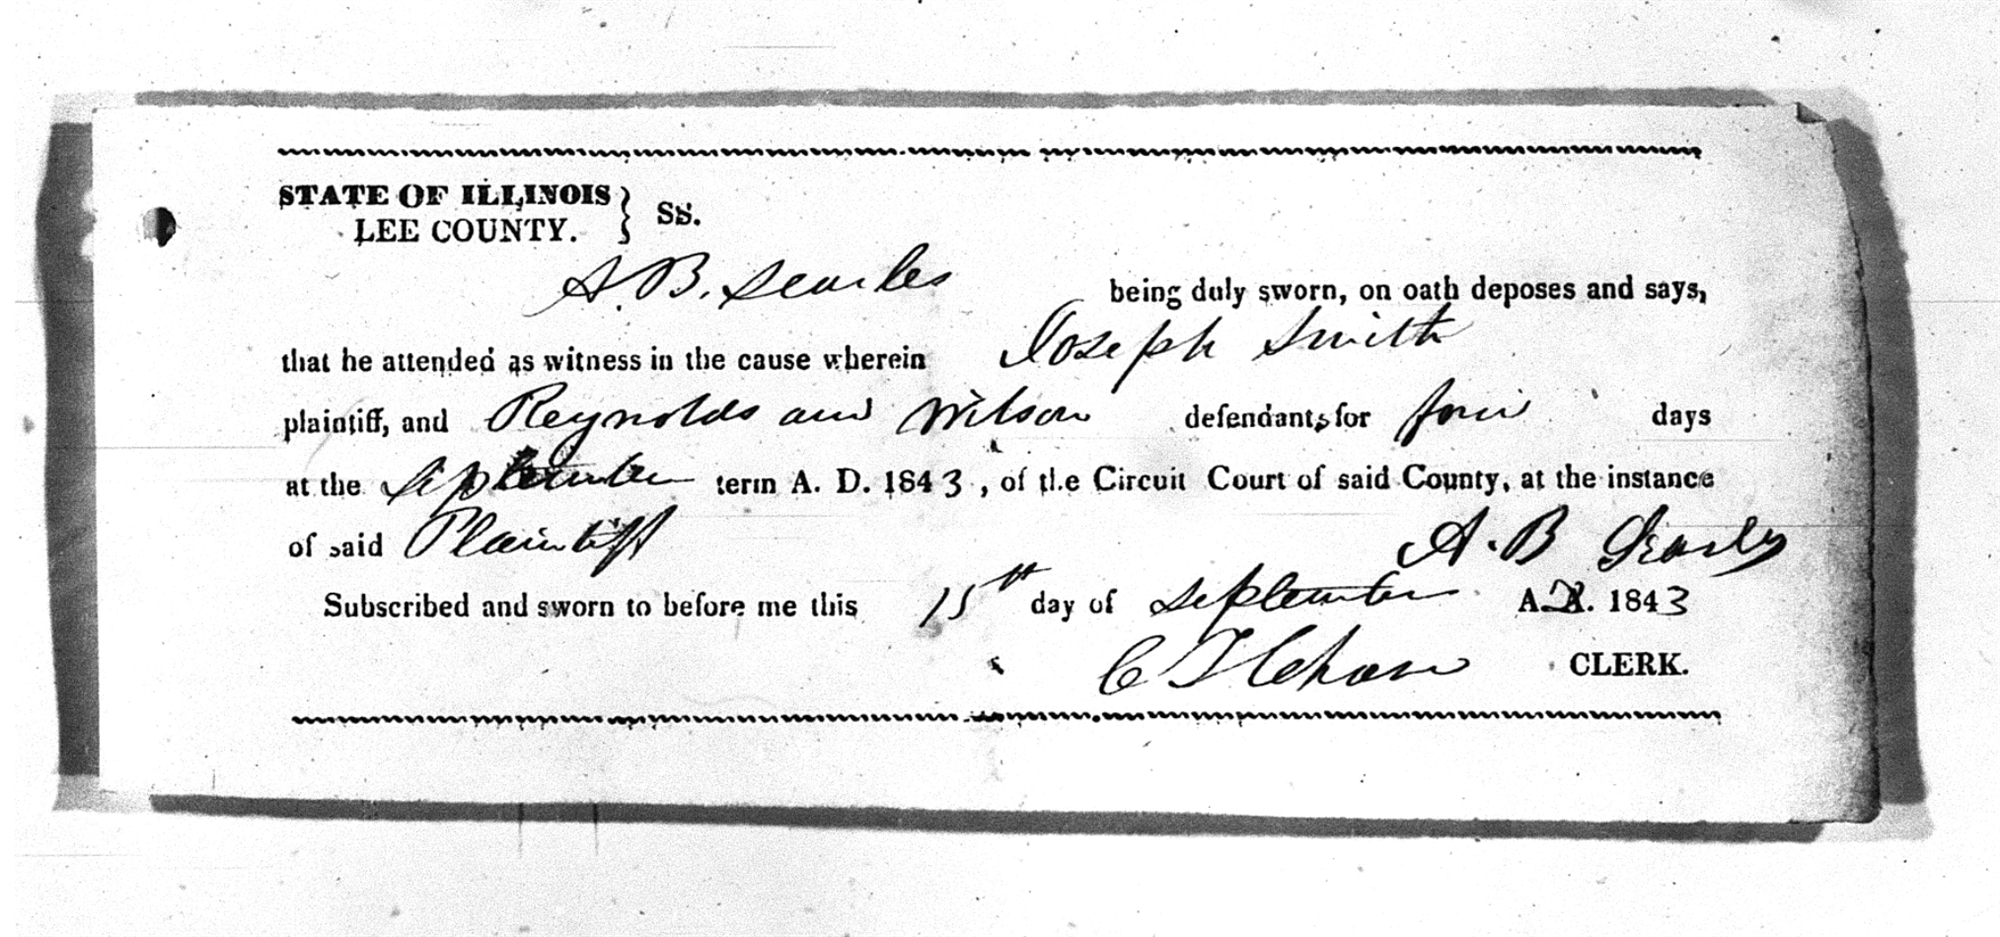 STATE OF ILLINOIS } SS.
LEE COUNTY.
A. B. Searles being duly sworn, on oath deposes and says,
that he attended as witness in the cause wherein Joseph Smith
plaintiff, and Reynolds and Wilson defendants for four days
at the September term A. D. 1843, of the Circuit Court of said County, at the instance
of said Plaintiff A. B Searls
Subscribed and sworn to before me this 15th day of September A. D. 1843
CLERK.